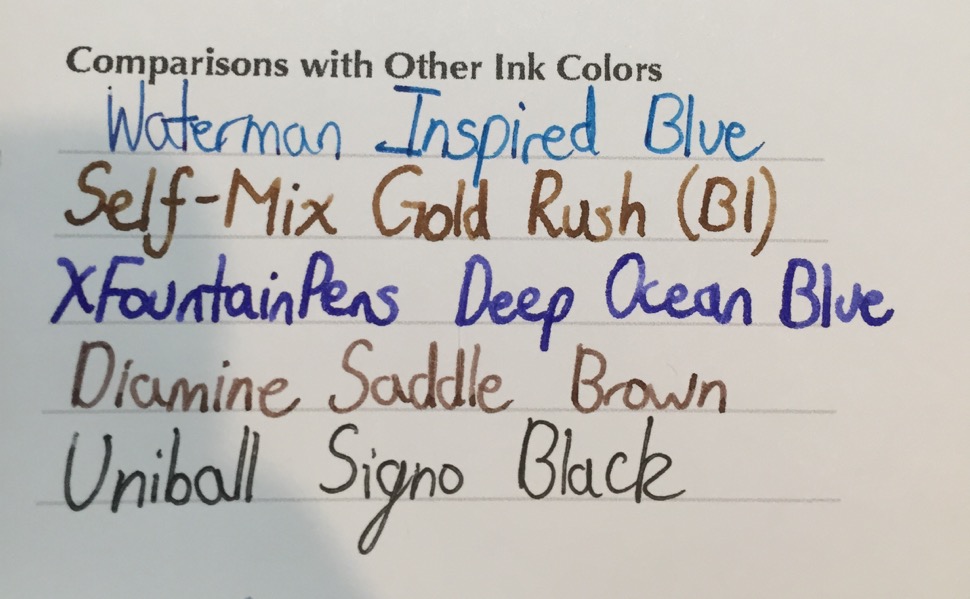 Comparisons with Other Ink Colors
Waterman Inspired Blue
Self-Mix Gold Rush (B1)
XFountainPens Deep Ocean Blue
Diamine Saddle Brown
Uniball Signo Black